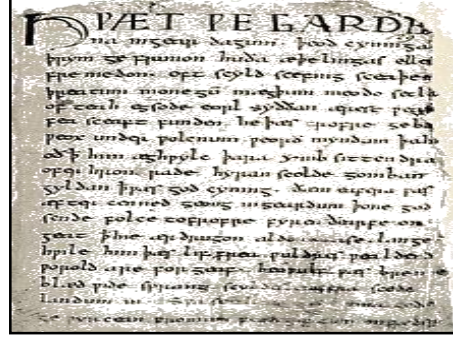 HǷÆT ǷE GARDE
na ingear dagum. þeod cyninga
þrym ge frunon huða æþelingas ellen
fremedon. oft scyld scefing sceaþen
þreatum monegū mægþum meodo setla
of teah egsode eorl syððan ærest ƿear
fea sceaft funden he þæs frofre geba
ƿeox under ƿolcnum ƿeorð myndum þah
oð þ him æghƿylc þara ymb sittendra
ofer hron rade hyran scolde gomban
gyldan þæt ƿæs god cyning. ðæm eafera ƿæs
æfter cenned geong ingeardum þone god
sende folce tofrofre fyren ðearfe on
geat þ hie ær drugon aldor ase. lange
hƿile him þæs lif frea ƿuldres ƿealdend
ƿorold are for geaf. beoƿulf ƿæs breme
blæd ƿide sprang scyldes eafera scede
landum in